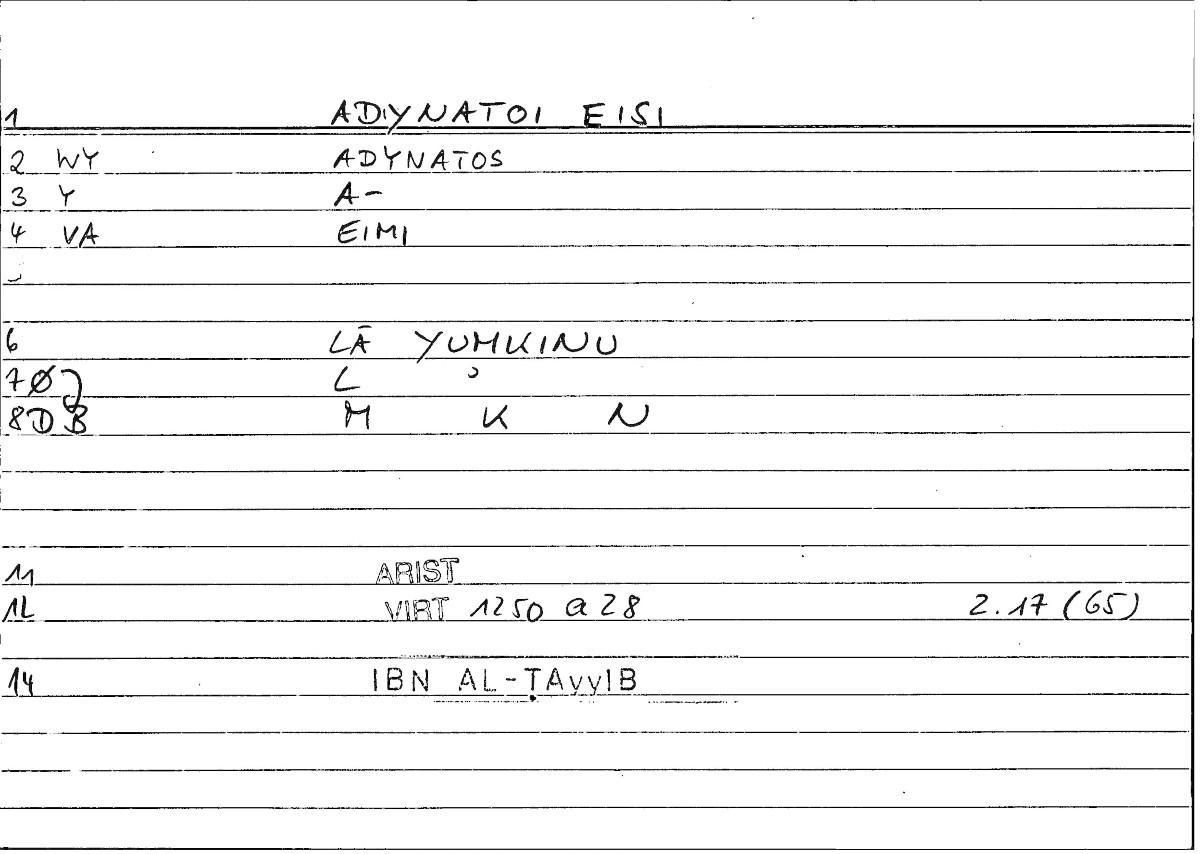 1 ADYNATOI EISI
2 WY ADYNATOS
3 Y A-
4 VA EIMI
6 LĀ YUMKINU
7 Ø L
8 DB M K N
11 ARIST
12 VIRT 1250 a 28 2.17 (65)
14 IBN AL-ṬAyyIB